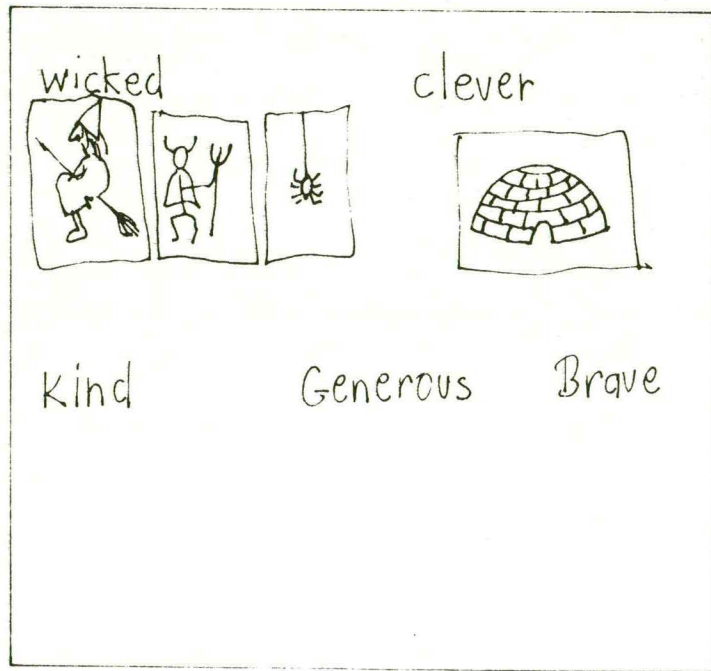 wicked clever
Kind Generous Brave